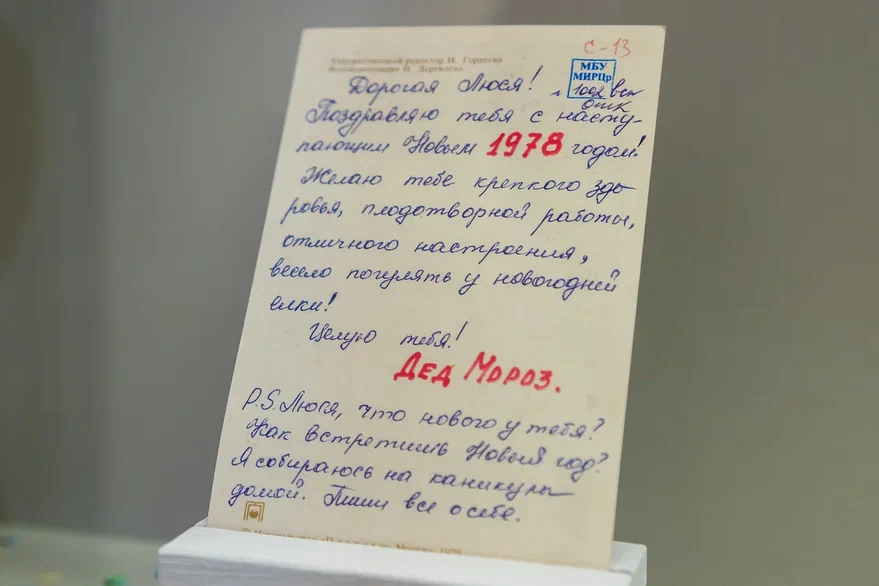 С-13
Художественный редактор И. Гордеева
МБУ
МИРЦр
1002 всп
ОТК
Дорогая Люся!
Поздравляю тебя с насту-
пающим Новым 1978 годом!
Желаю тебе крепкого здо-
ровья, плодотворной работы,
отличного настроения,
весело погулять у новогодней
елки!
Целую тебя!
Дед Мороз.
P.S. Люся, что нового у тебя?
Как встретишь Новый год?
Я собираюсь на каникулы
домой. Пиши все о себе.